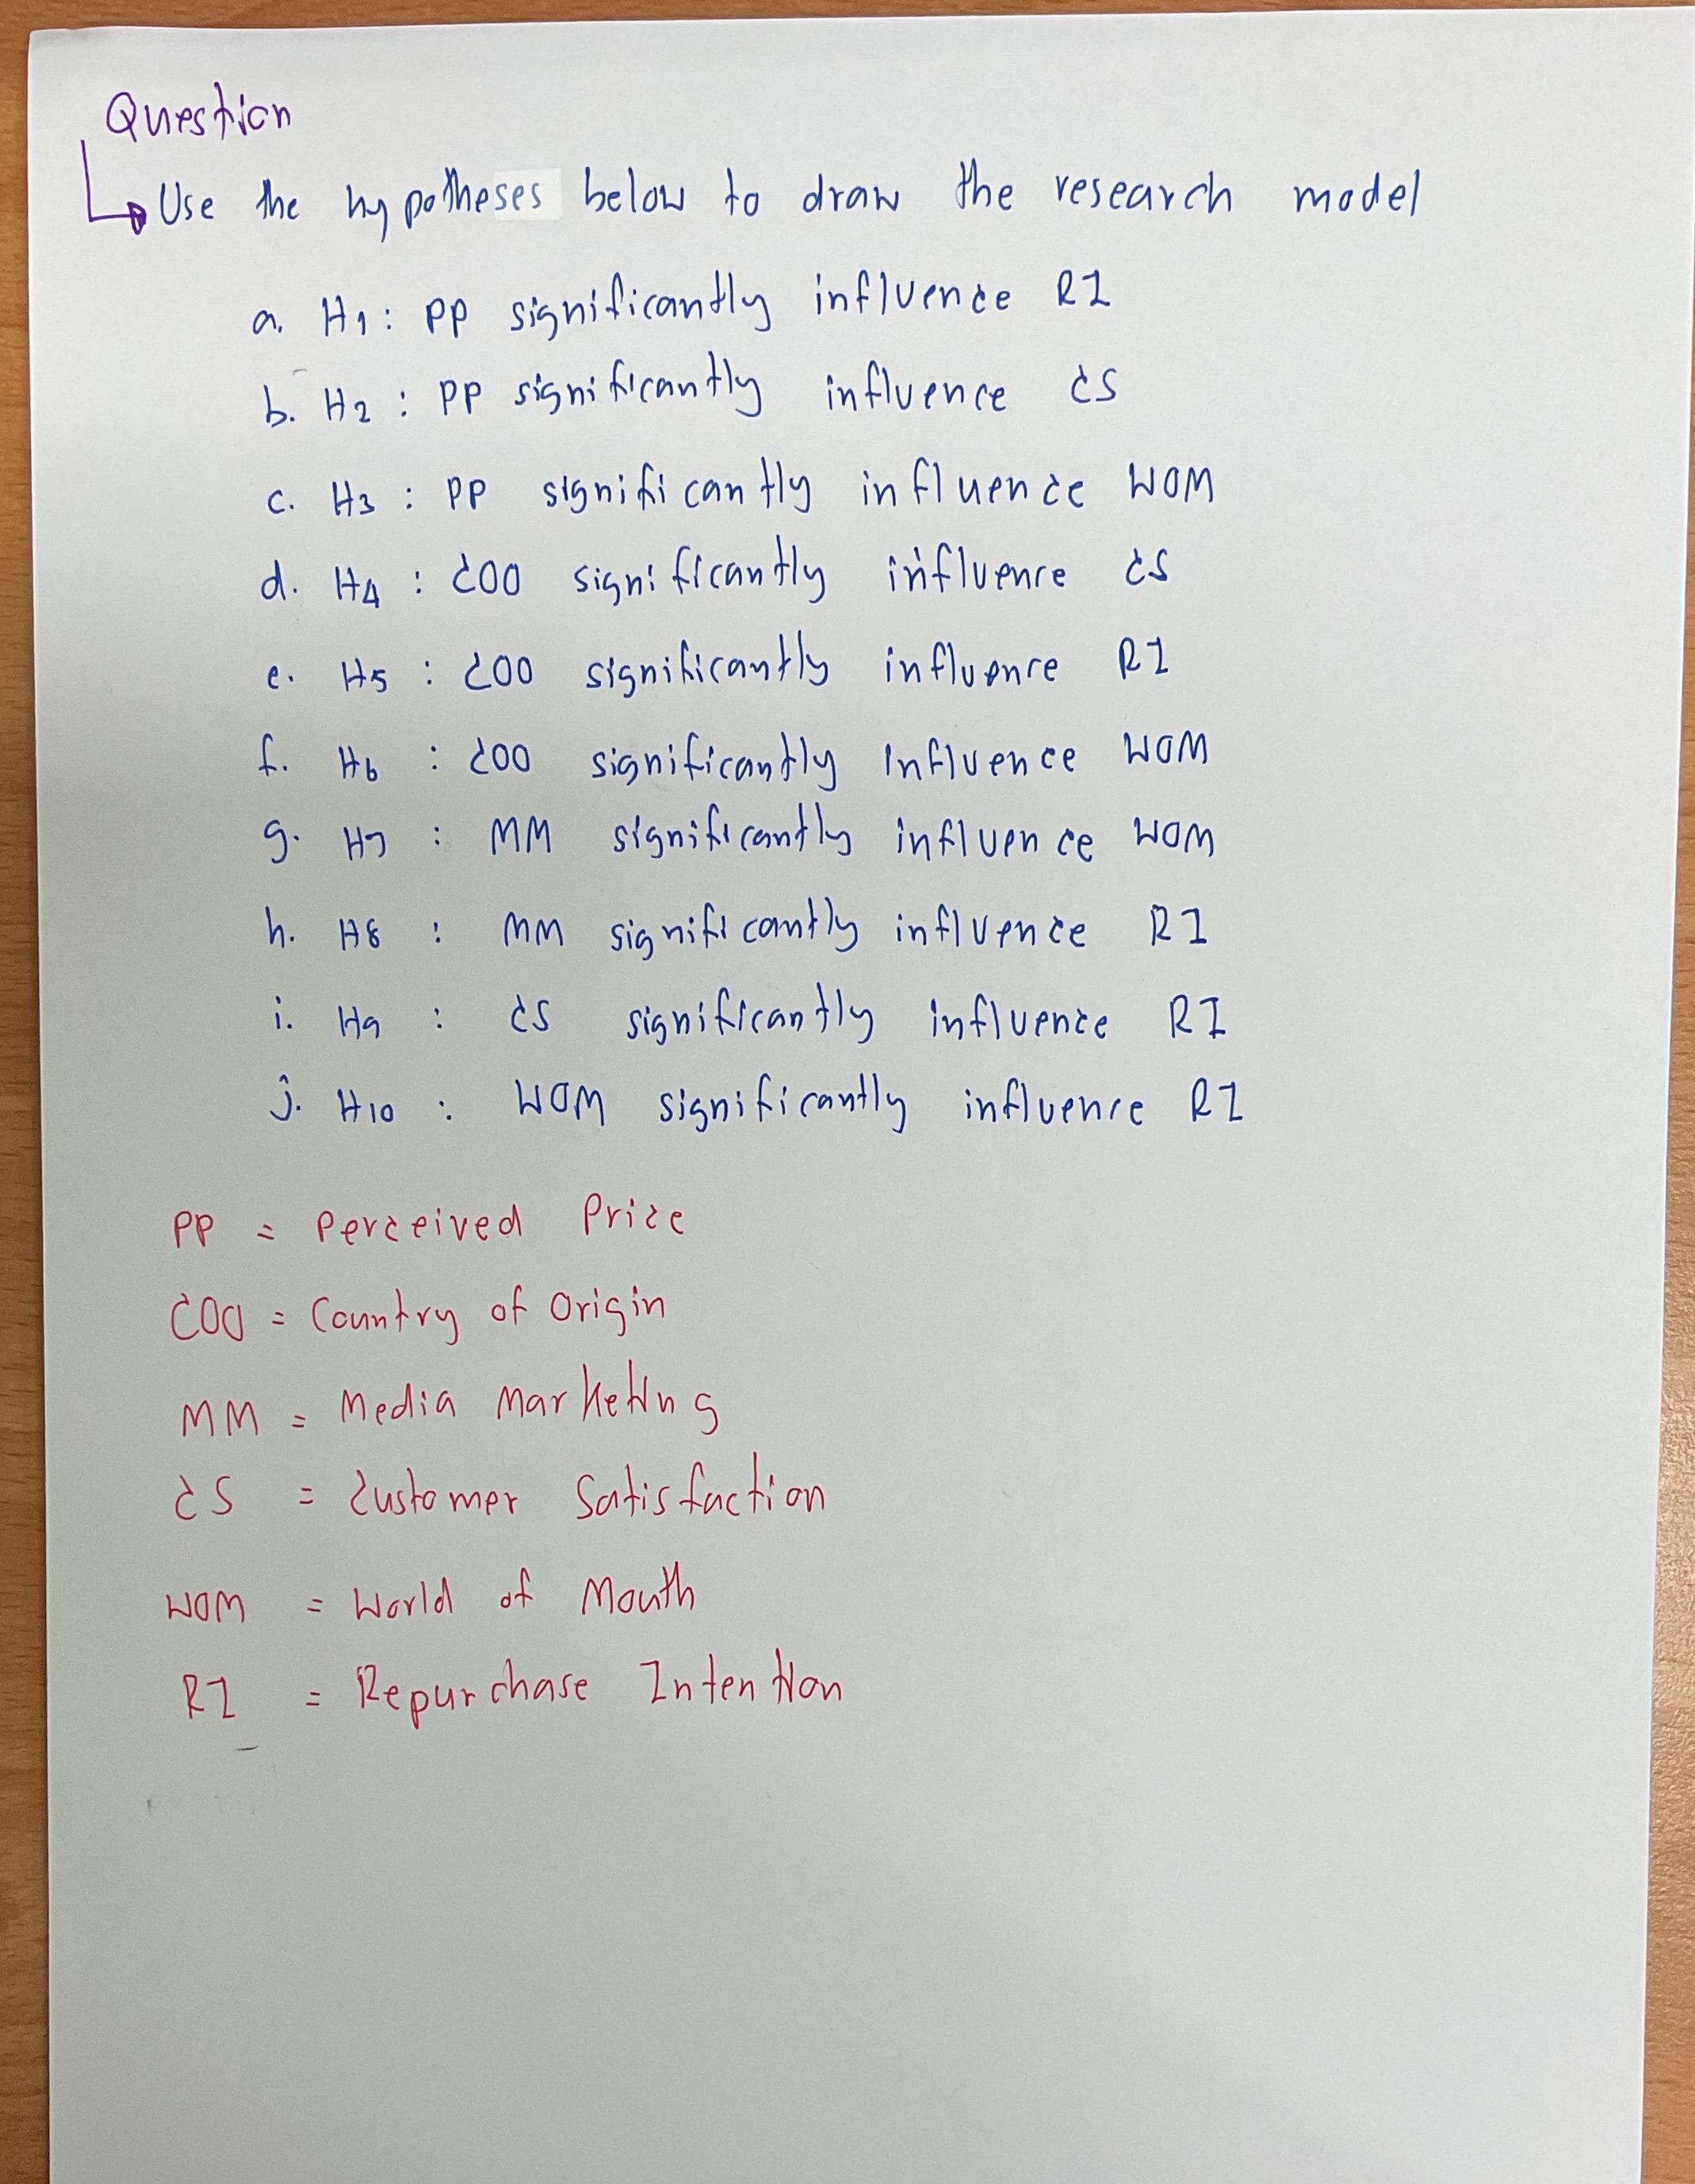 Question
Use the hypotheses below to draw the research model
a. H1 : PP significantly influence RI
b. H2 : PP significantly influence CS
c. H3 : PP significantly influence WOM
d. H4 : COO significantly influence CS
e. H5 : COO significantly influence RI
f. H6 : COO significantly influence WOM
g. H7 : MM significantly influence WOM
h. H8 : MM significantly influence RI
i. H9 : CS significantly influence RI
j. H10 : WOM significantly influence RI
PP = Perceived Price
COO = Country of Origin
MM = Media Marketing
CS = Customer Satisfaction
WOM = World of Mouth
RI = Repurchase Intention